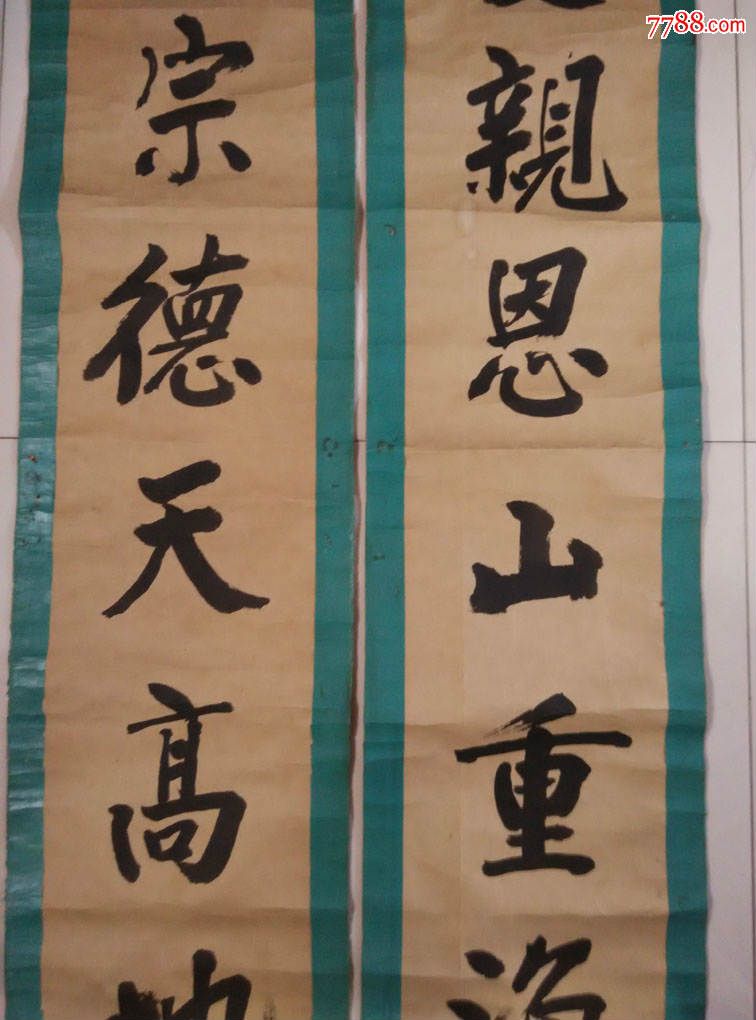 親恩山重
宗德天高地
7788.com